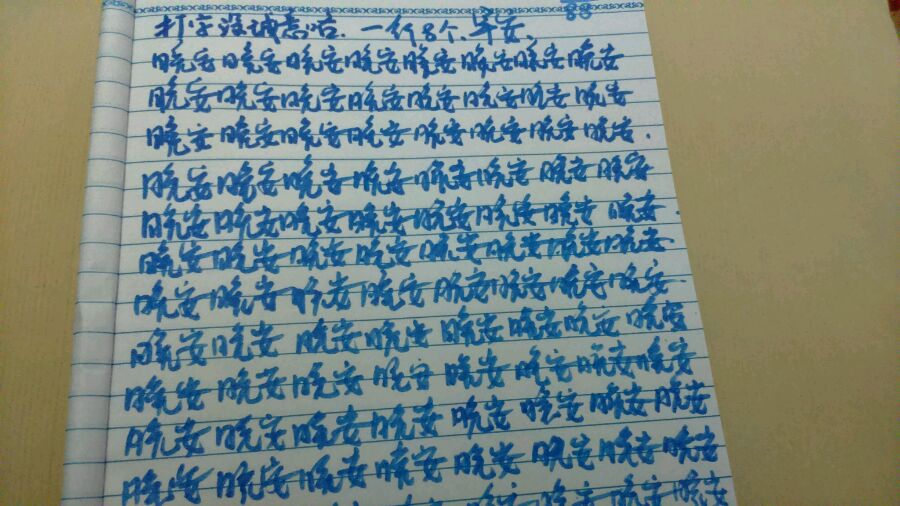 88
打字没诚意哈.一行8个、早安、
晚安晚安晚安晚安晚安晚安晚安晚安
晚安晚安晚安晚安晚安晚安晚安晚安
晚安晚安晚安晚安晚安晚安晚安晚安.
晚安晚安晚安晚安晚安晚安晚安晚安
晚安晚安晚安晚安晚安晚安晚安晚安.
晚安晚安晚安晚安晚安晚安晚安晚安
晚安晚安晚安晚安晚安晚安晚安晚安
晚安晚安晚安晚安晚安晚安晚安晚安
晚安晚安晚安晚安晚安晚安晚安晚安
晚安晚安晚安晚安晚安晚安晚安晚安
晚安晚安晚安晚安晚安晚安晚安晚安
晚安晚安晚安晚安